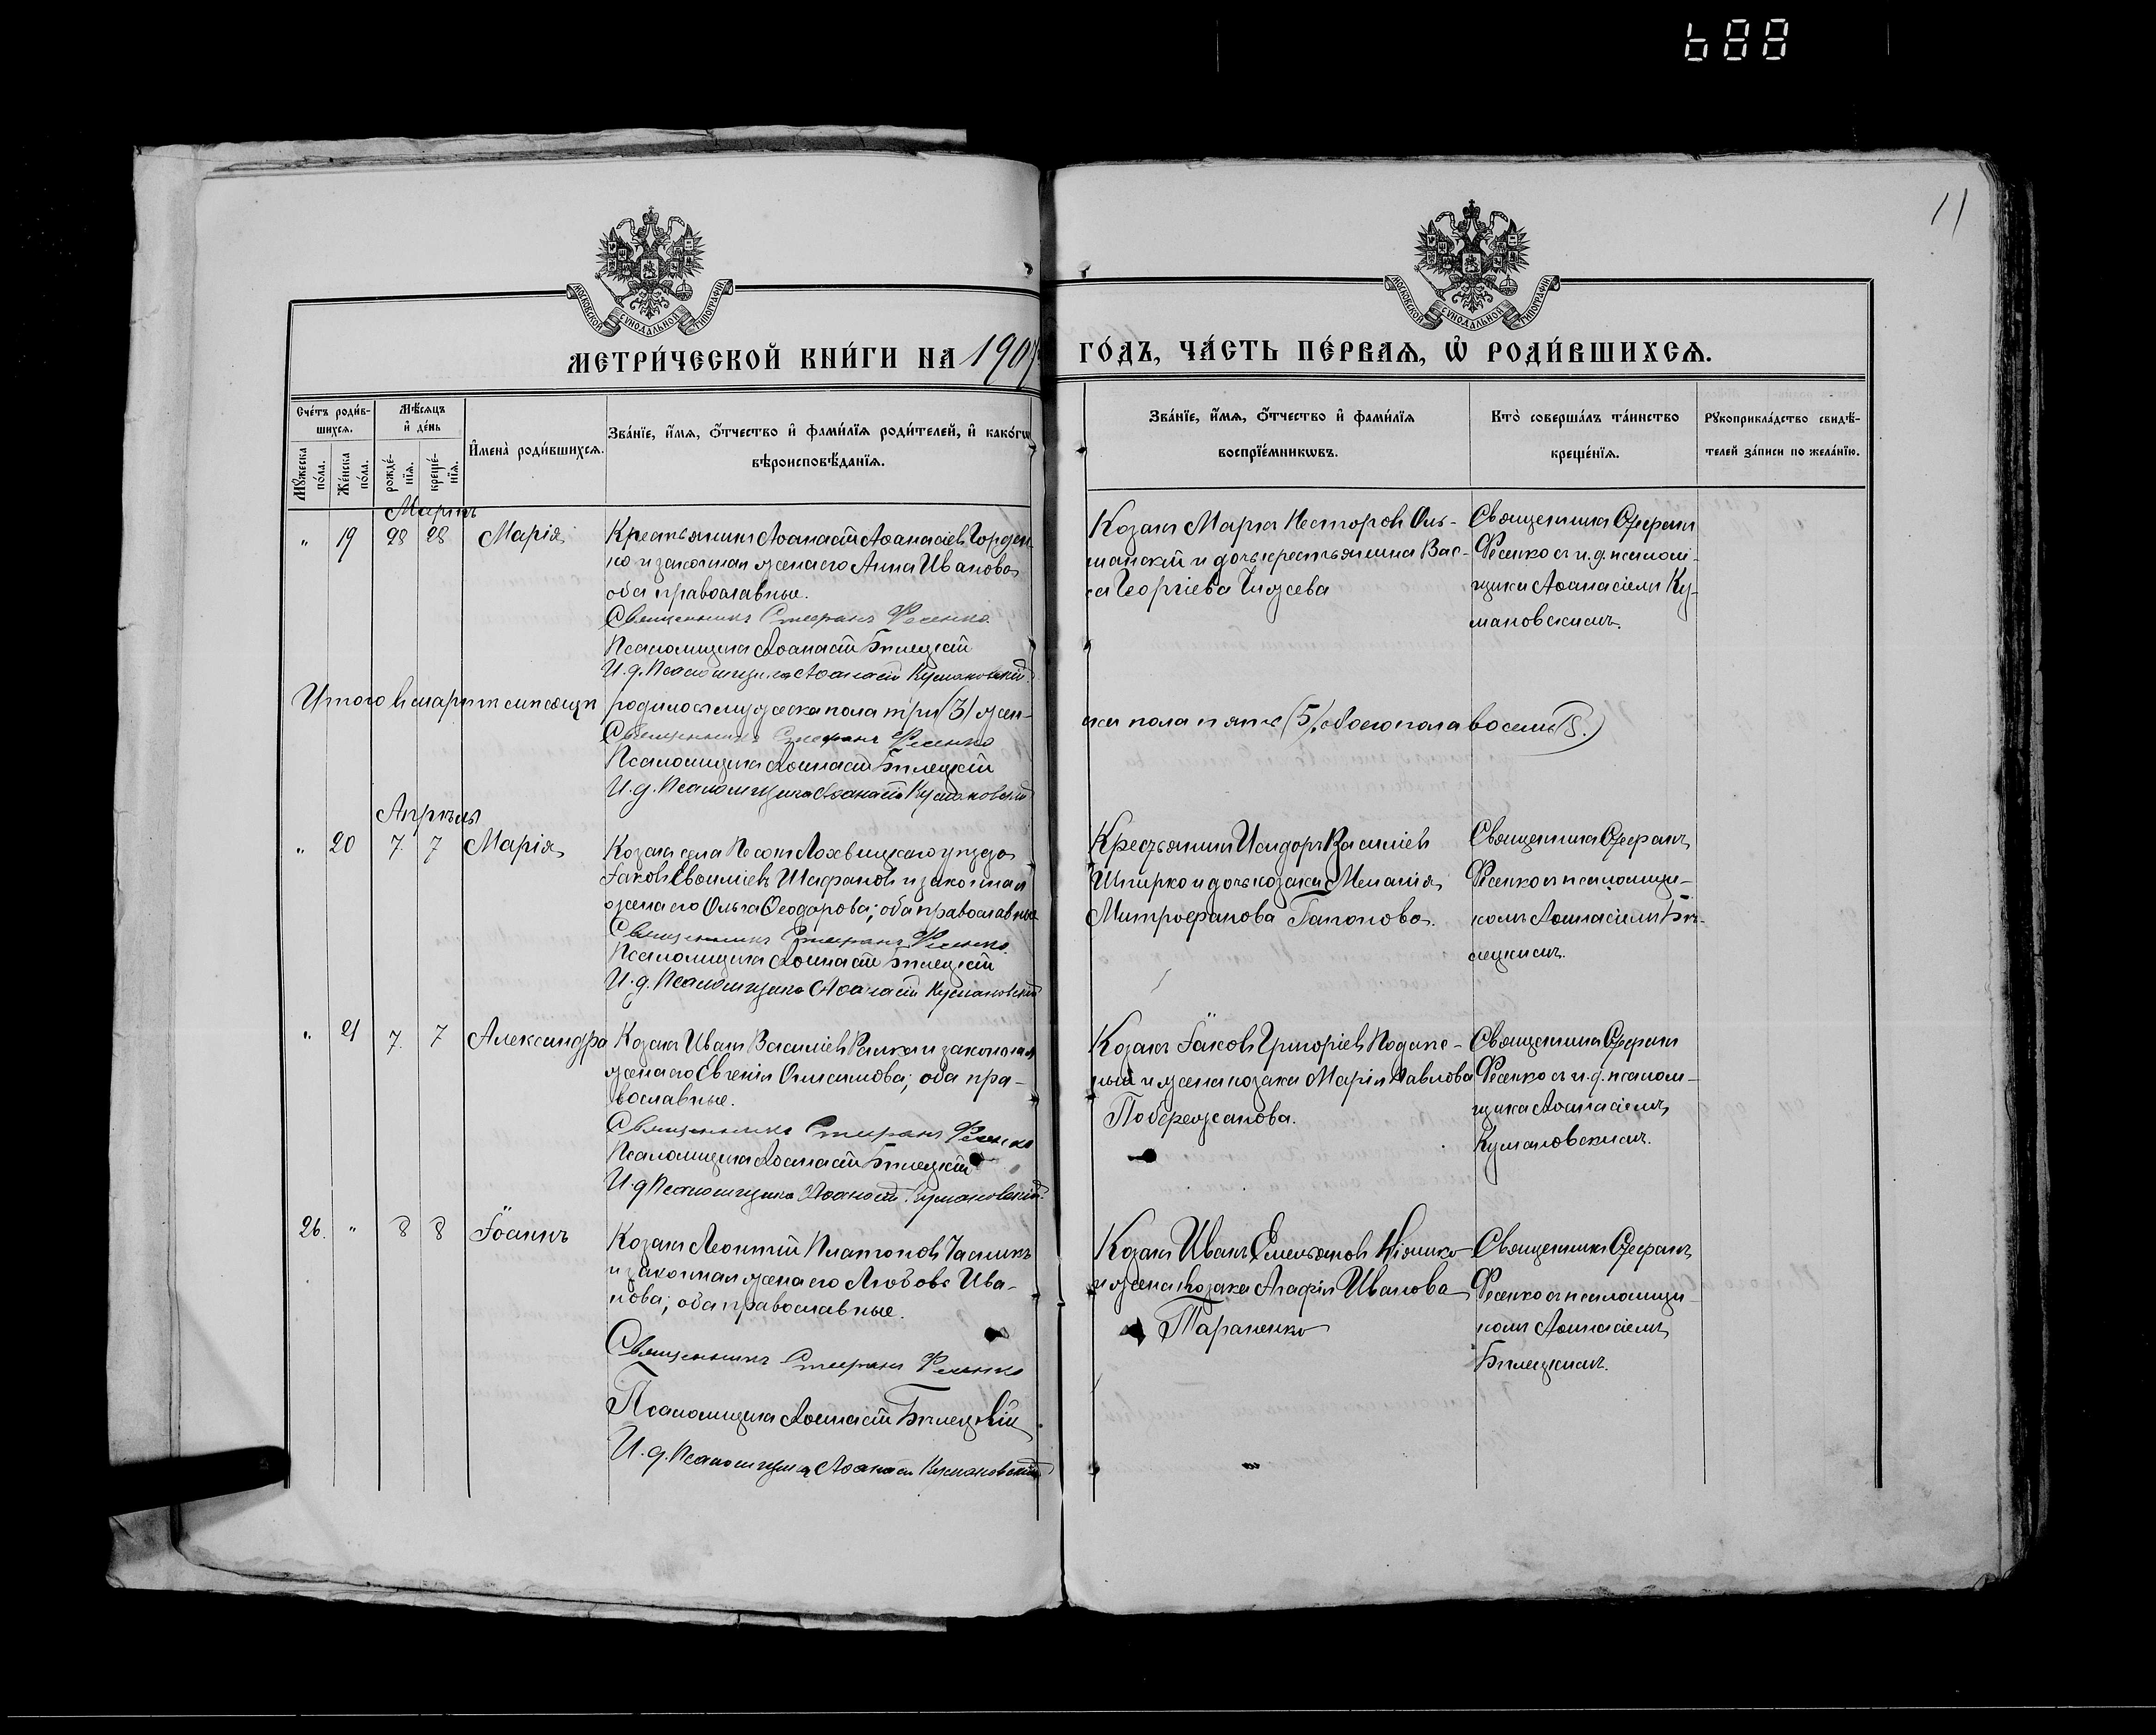 688
11
МОСКОВСКОЙ СУНОДАЛЬНОЙ ТИПОГРАФІИ
МОСКОВСКОЙ СУНОДАЛЬНОЙ ТИПОГРАФІИ
МЕТРИ́ЧЕСКОЙ КНИ́ГИ НА 1907
ГО́ДЪ, ЧА́СТЬ ПЕ́РВАѦ, Ѡ҆ РОДИ́ВШИХСѦ.
Сче́тъ роди́в-
шихсѧ.
Мѣ́сѧцъ
и҆ де́нь
Мꙋ́жеска
по́ла.
Же́нска
по́ла.
рожде́-
нїѧ.
креще́-
нїѧ.
И҆мена̀ роди́вшихсѧ.
Зва́нїе, и҆́мѧ, ѻ҆́тчество и҆ фами́лїѧ роди́телей, и҆ како́гѡ
вѣроисповѣ́данїѧ.
Зва́нїе, и҆́мѧ, ѻ҆́тчество и҆ фами́лїѧ
воспрїе́мникѡвъ.
Кто̀ соверша́лъ та́инство
креще́нїѧ.
Рꙋкоприкла́дство свидѣ́-
телей за́писи по жела́нїю.
Мартъ
" 19 28 28 Марія
Крестьянинъ Аѳанасій Аѳанасіевъ Горден-
ко и законная жена его Анна Иванова
оба православные.
Священникъ Стефанъ Фесенко
Псаломщикъ Аѳанасій Бѣлецкій
И.д. Псаломщика Аѳанасій Кумановскій
Козакъ Марка Несторовъ Оль-
шанскій и дочь крестьянина Вас-
са Георгіева
Священникъ Стефанъ
Фесенко съ и.д. псалом-
щика Аѳанасіемъ Ку-
мановскимъ.
Итого въ мартѣ мѣсяцѣ родилось мужеска пола три (3) жен-
ска пола пять (5), обоего пола восемь (8.)
Священникъ Стефанъ Фесенко
Псаломщикъ Аѳанасій Бѣлецкій
И.д. Псаломщика Аѳанасій Кумановскій
Апрѣль
" 20 7 7 Марія
Козакъ села Песокъ Лохвицкаго уѣзда
Іаковъ Шафановъ и законная
жена его Ольга Ѳеодорова; оба православные
Священникъ Стефанъ Фесенко
Псаломщикъ Аѳанасій Бѣлецкій
И.д. Псаломщика Аѳанасій Кумановскій
Крестьянинъ Исидоръ Василіевъ
Шпирко и дочь козака Меланія
Митрофанова Гапонова.
Священникъ Стефанъ
Фесенко съ псаломщи-
комъ Аѳанасіемъ Бѣ-
лецкимъ.
" 21 7. 7 Александра
Козакъ Иванъ Василіевъ и законная
жена его Евгенія Онисимова; оба пра-
вославные.
Священникъ Стефанъ Фесенко
Псаломщикъ Аѳанасій Бѣлецкій
И.д. Псаломщика Аѳанасій Кумановскій
Козакъ Іаковъ Григоріевъ
и жена козака Марія Павлова
Побережанова.
Священникъ Стефанъ
Фесенко съ и.д. псалом-
щика Аѳанасіемъ
Кумановскимъ.
26. " 8 8 Іоаннъ
Козакъ Леонтій Платоновъ Часникъ
и законная жена его Любовь Ива-
нова; оба православные.
Священникъ Стефанъ Фесенко
Псаломщикъ Аѳанасій Бѣлецкій
И.д. Псаломщика Аѳанасій Кумановскій
Козакъ Иванъ Емельяновъ
и жена козака Агафія Иванова
Тараненко
Священникъ Стефанъ
Фесенко съ псаломщи-
комъ Аѳанасіемъ
Бѣлецкимъ.